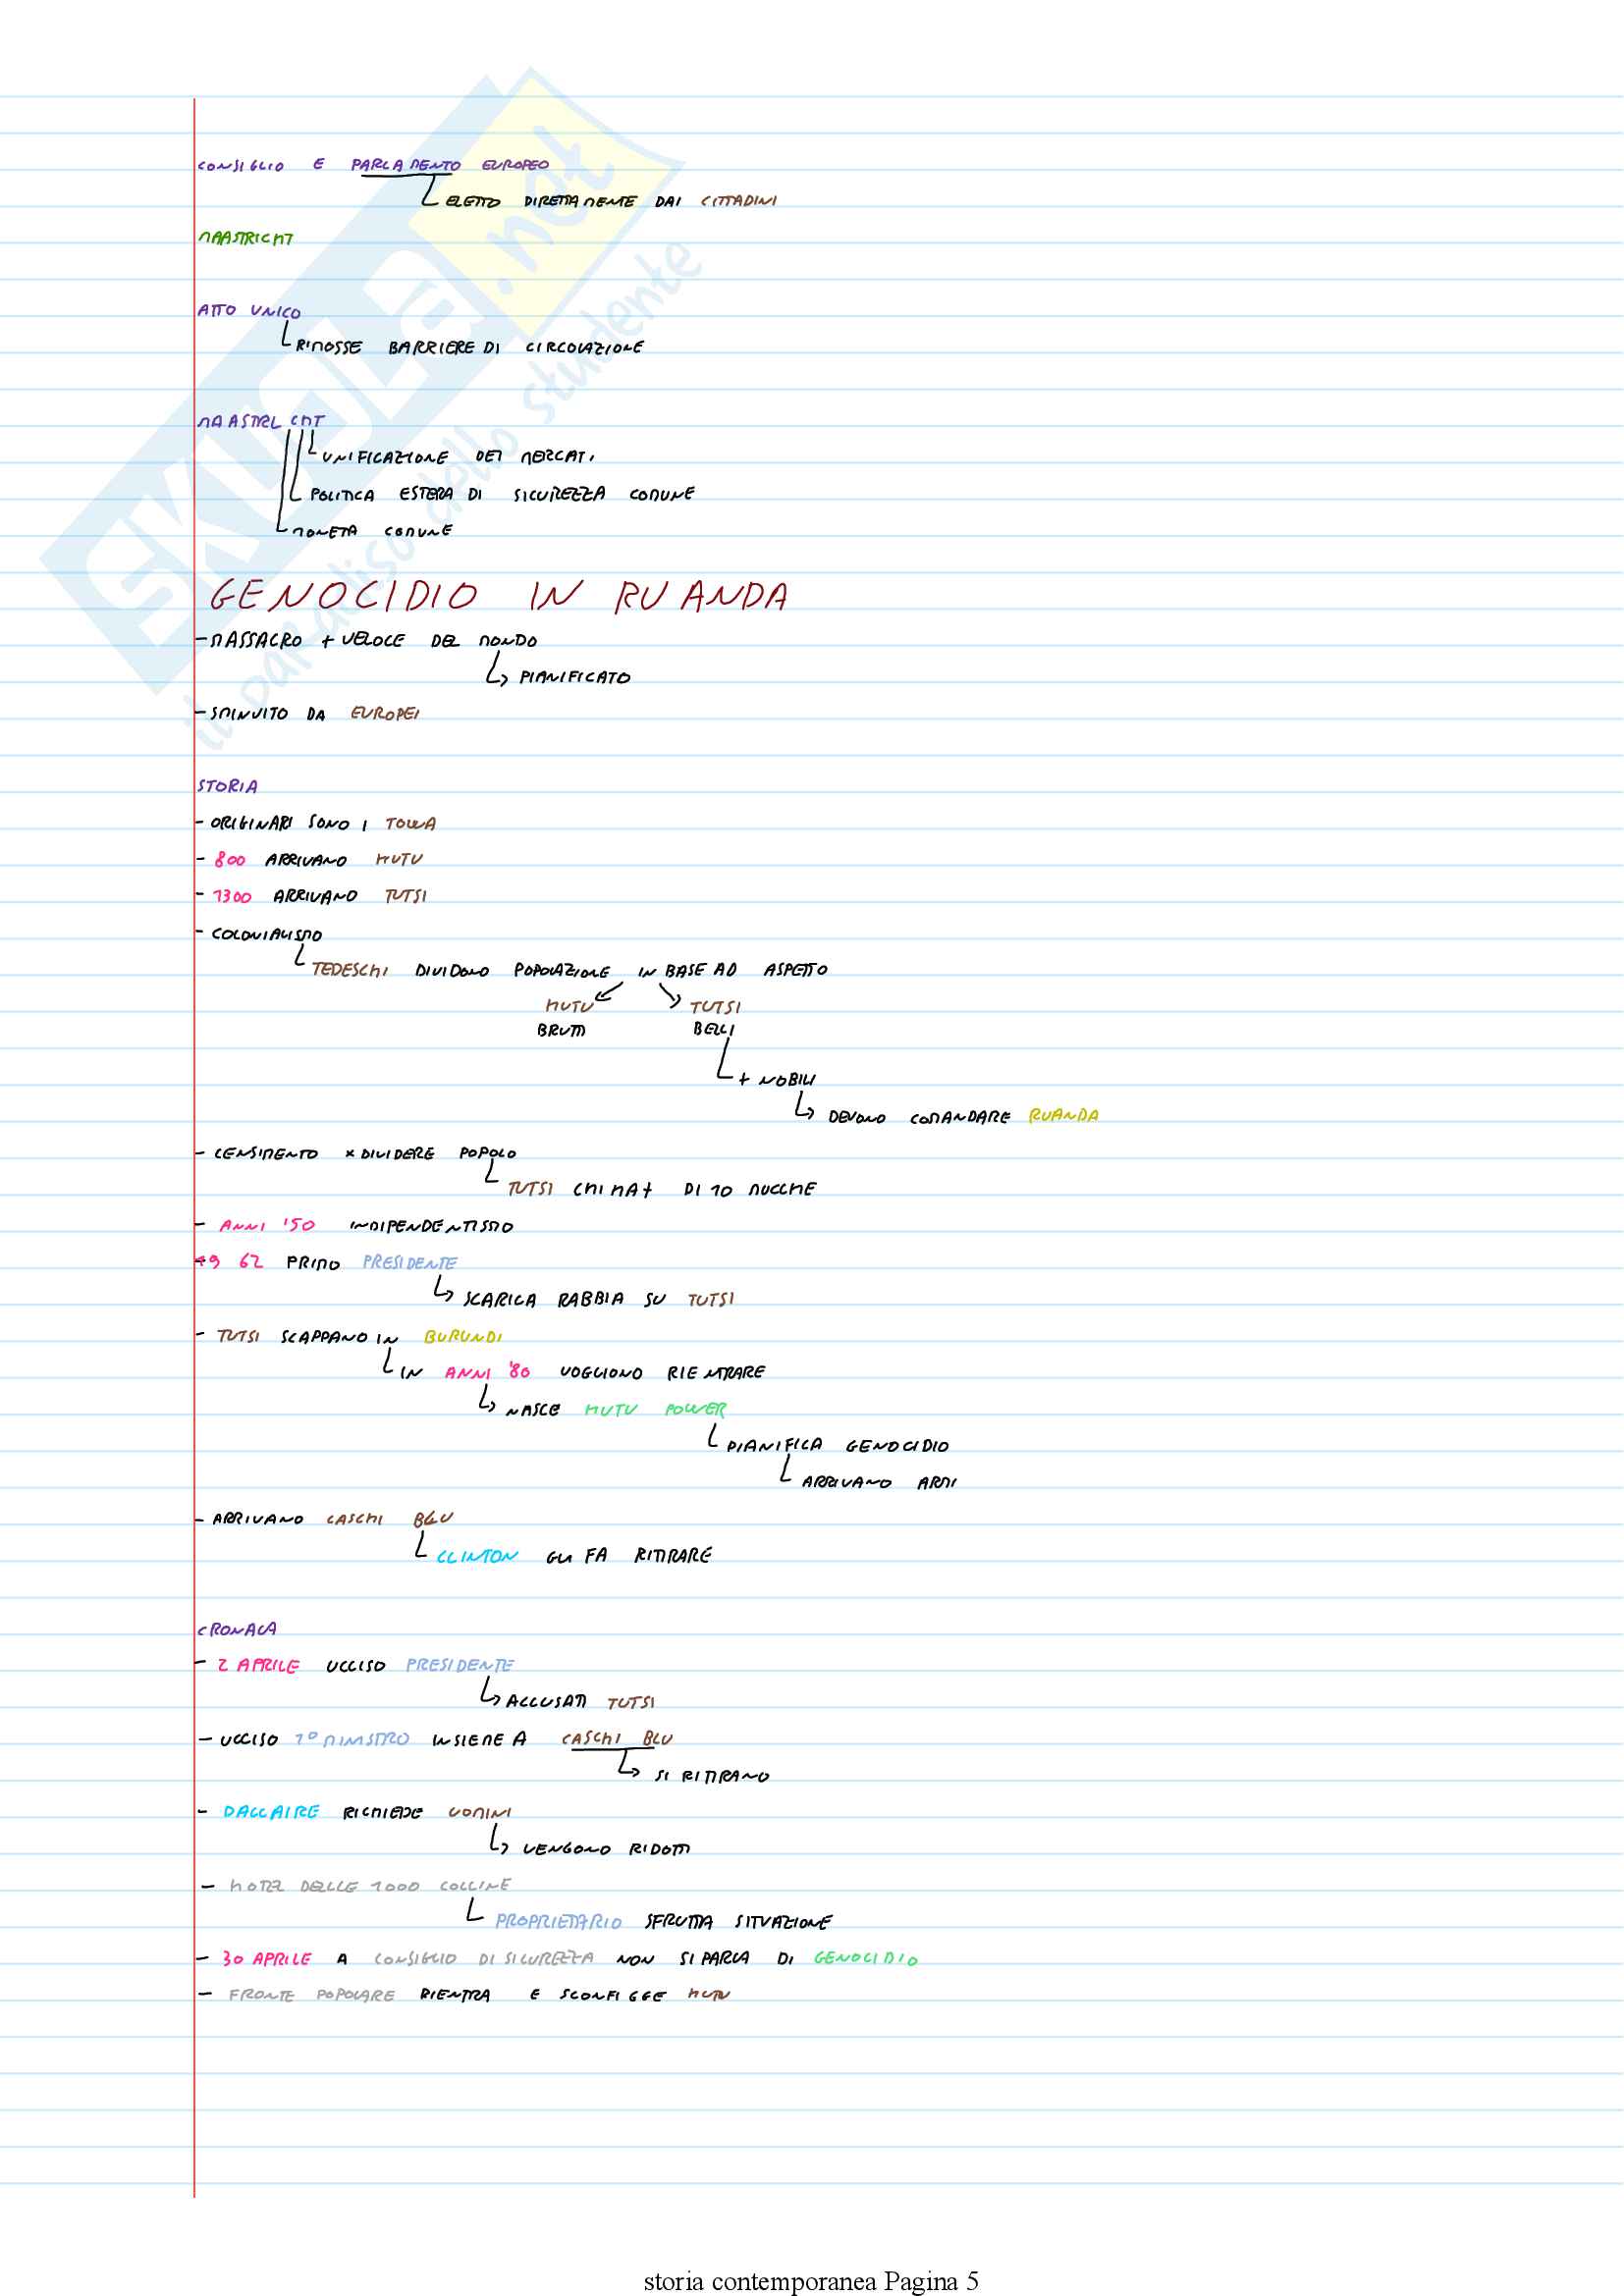 CONSIGLIO E PARLAMENTO EUROPEO
ELETTO DIRETTAMENTE DAI CITTADINI
MAASTRICHT
ATTO UNICO
RIMOSSE BARRIERE DI CIRCOLAZIONE
MAASTRICHT
UNIFICAZIONE DEI MERCATI
POLITICA ESTERA DI SICUREZZA COMUNE
MONETA COMUNE
GENOCIDIO IN RUANDA
- MASSACRO + VELOCE DEL MONDO
PIANIFICATO
- SMINUITO DA EUROPEI
STORIA
- ORIGINARI SONO I TOWA
- 800 ARRIVANO HUTU
- 1300 ARRIVANO TUTSI
- COLONIALISMO
TEDESCHI DIVIDONO POPOLAZIONE IN BASE AD ASPETTO
HUTU TUTSI
BRUTTI BELLI
+ NOBILI
DEVONO COMANDARE RUANDA
- CENSIMENTO x DIVIDERE POPOLO
TUTSI CHI HA + DI 10 MUCCHE
- ANNI '50 INDIPENDENTISMO
- 1962 PRIMO PRESIDENTE
SCARICA RABBIA SU TUTSI
- TUTSI SCAPPANO IN BURUNDI
IN ANNI '80 VOGLIONO RIENTRARE
NASCE HUTU POWER
PIANIFICA GENOCIDIO
ARRIVANO ARMI
- ARRIVANO CASCHI BLU
CLINTON GLI FA RITIRARE
CRONACA
- 2 APRILE UCCISO PRESIDENTE
ACCUSATI TUTSI
- UCCISO 1° MINISTRO INSIEME A CASCHI BLU
SI RITIRANO
- DALLAIRE RICHIEDE UOMINI
VENGONO RIDOTTI
- HOTEL DELLE 1000 COLLINE
PROPRIETARIO SFRUTTA SITUAZIONE
- 30 APRILE A CONSIGLIO DI SICUREZZA NON SI PARLA DI GENOCIDIO
- FRONTE POPOLARE RIENTRA E SCONFIGGE HUTU
SKUOLA.net
il paradiso dello studente
storia contemporanea Pagina 5